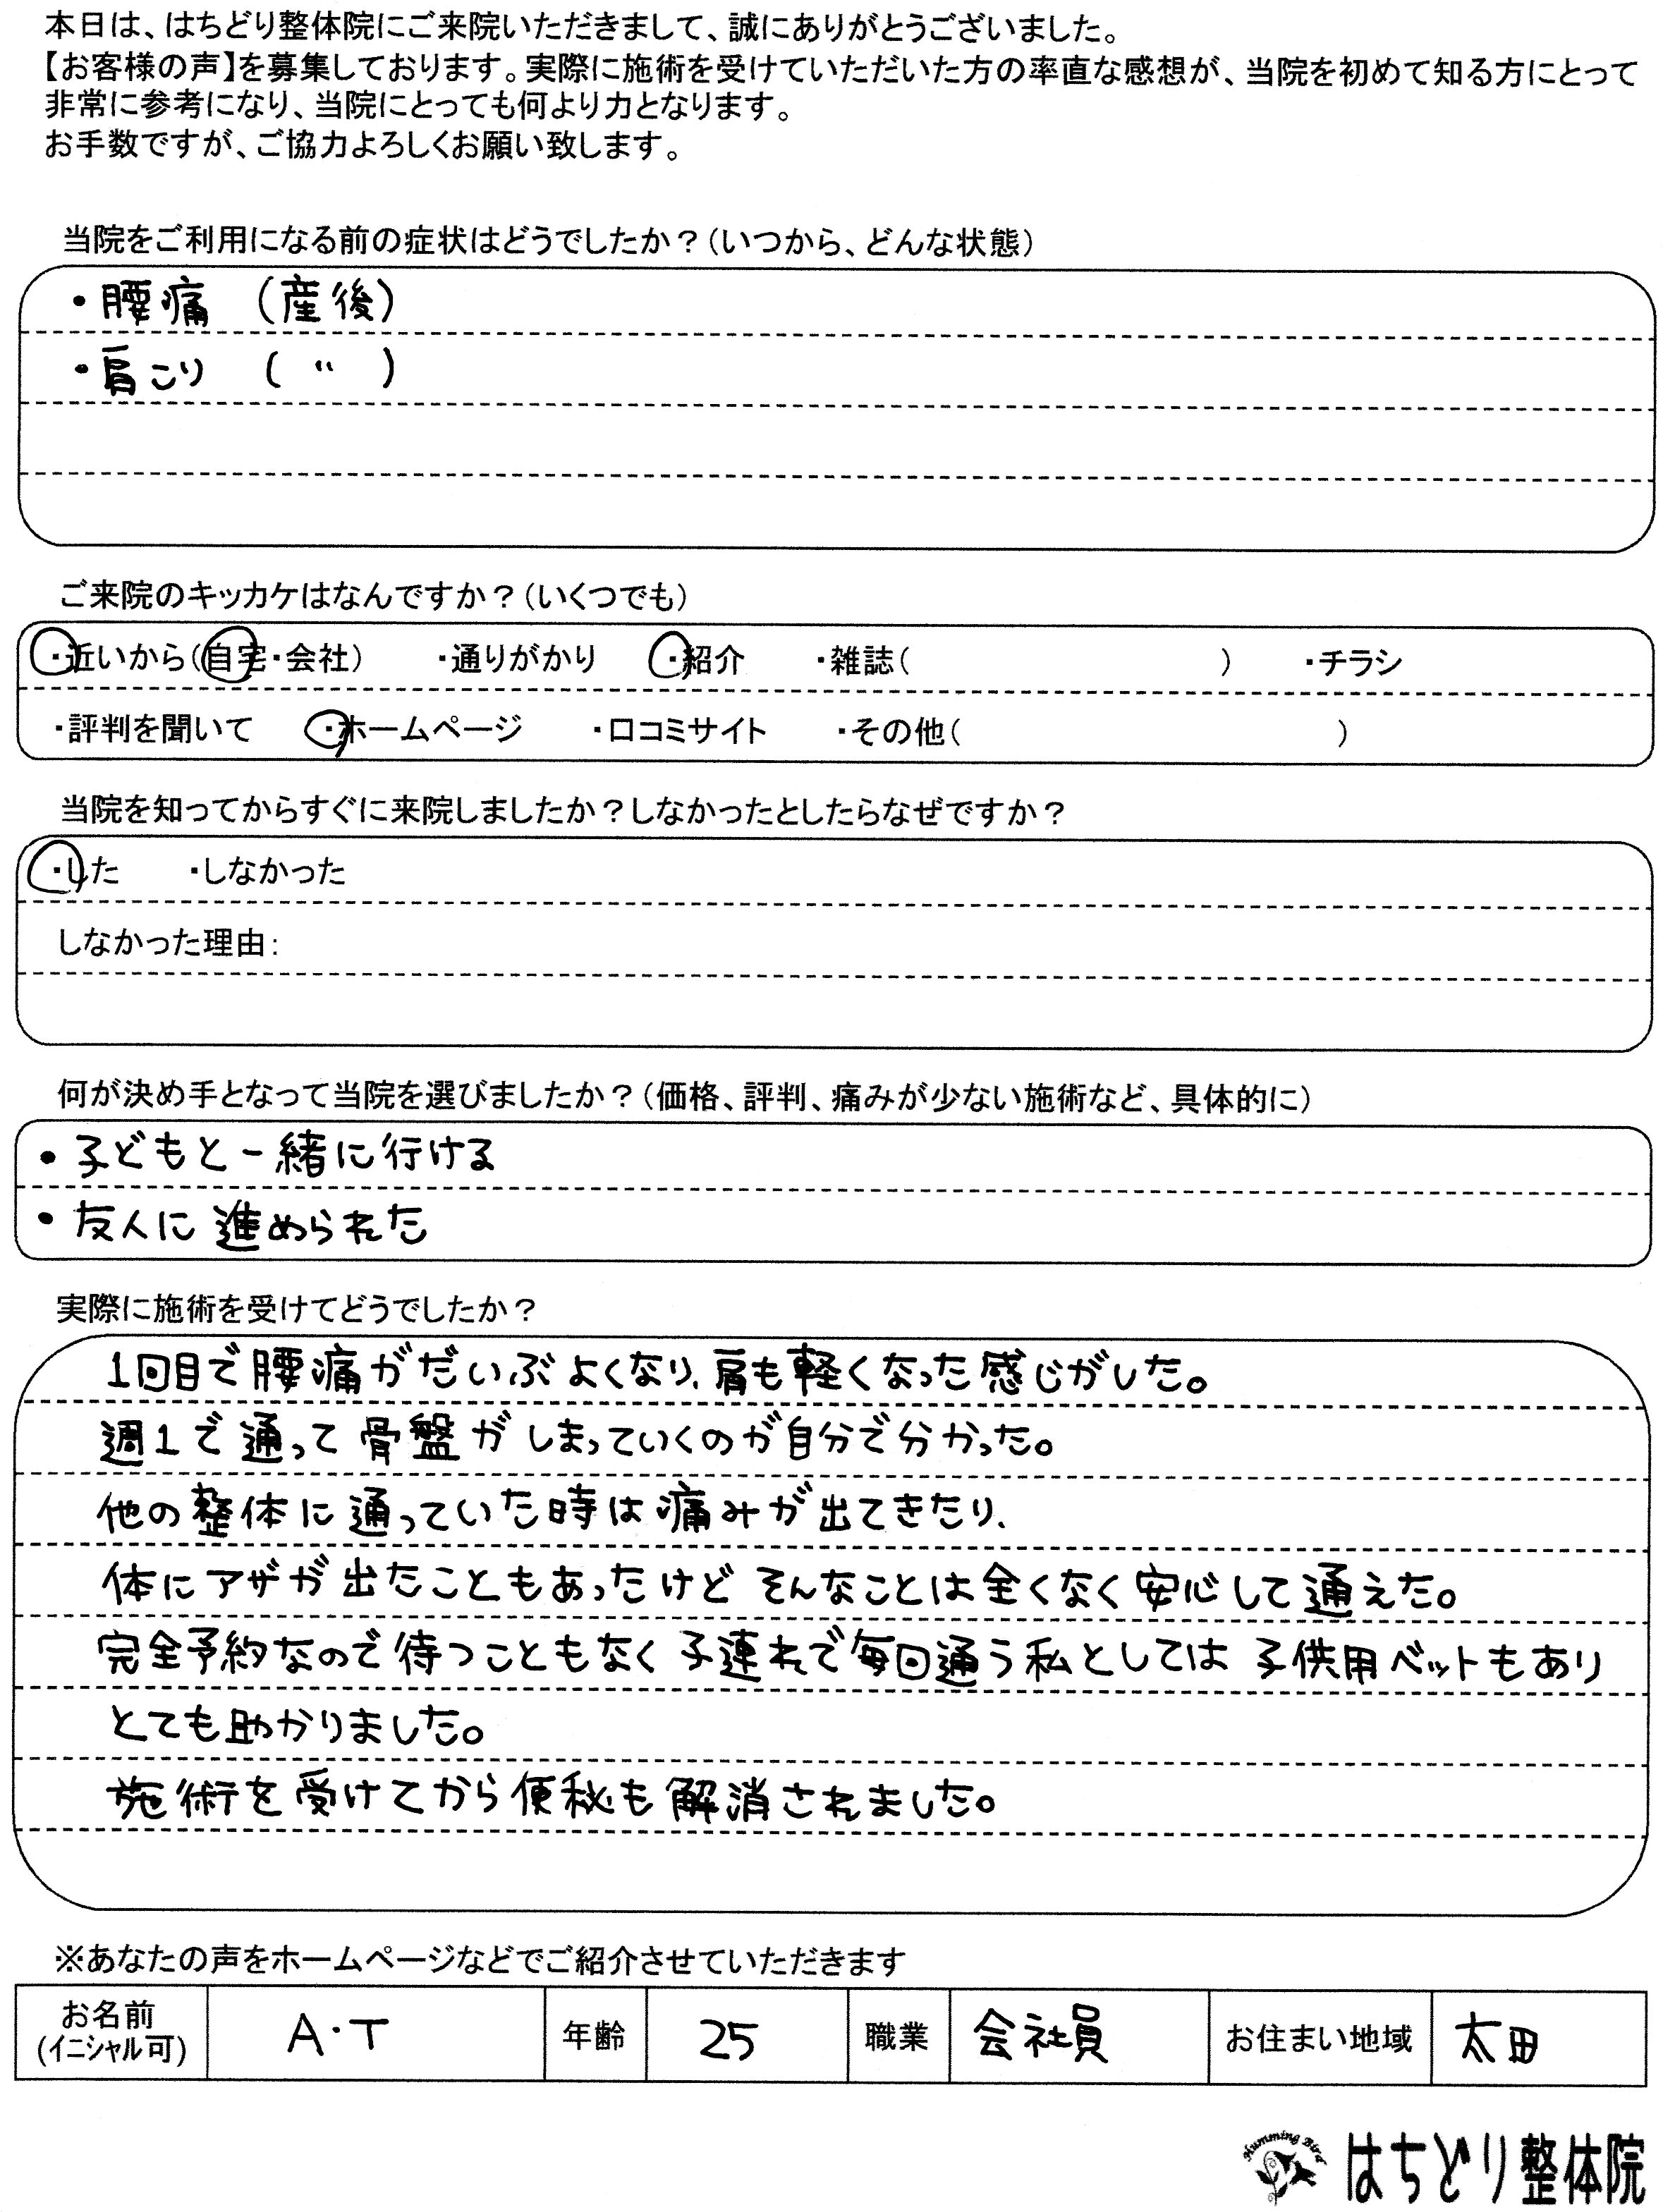 本日は、はちどり整体院にご来院いただきまして、誠にありがとうございました。
【お客様の声】を募集しております。実際に施術を受けていただいた方の率直な感想が、当院を初めて知る方にとって
非常に参考になり、当院にとっても何より力となります。
お手数ですが、ご協力よろしくお願い致します。
当院をご利用になる前の症状はどうでしたか？（いつから、どんな状態）
・腰痛 （産後）
・肩こり （ 〃 ）
ご来院のキッカケはなんですか？（いくつでも）
・近いから（自宅・会社） ・通りがかり ・紹介 ・雑誌（ ） ・チラシ
・評判を聞いて ・ホームページ ・口コミサイト ・その他（ ）
当院を知ってからすぐに来院しましたか？しなかったとしたらなぜですか？
・した ・しなかった
しなかった理由：
何が決め手となって当院を選びましたか？（価格、評判、痛みが少ない施術など、具体的に）
・子どもと一緒に行ける
・友人に進められた
実際に施術を受けてどうでしたか？
1回目で腰痛がだいぶよくなり、肩も軽くなった感じがした。
週1で通って骨盤がしまっていくのが自分で分かった。
他の整体に通っていた時は痛みが出てきたり、
体にアザが出たこともあったけどそんなことは全くなく安心して通えた。
完全予約なので待つこともなく子連れで毎回通う私としては子供用ベットもあり
とても助かりました。
施術を受けてから便秘も解消されました。
※あなたの声をホームページなどでご紹介させていただきます
お名前 (イニシャル可) A・T 年齢 25 職業 会社員 お住まい地域 太田
Humming Bird はちどり整体院